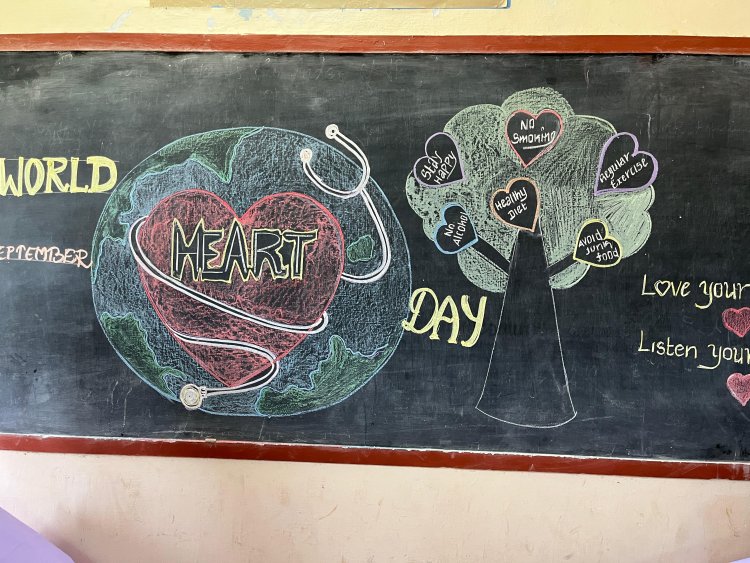 WORLD
EPTEMBER
HEART
DAY
No
Smoking
Stay
Happy
Regular
Exercise
Healthy
Diet
No
Alcohol
Avoid
junk
food
Love your
Listen your